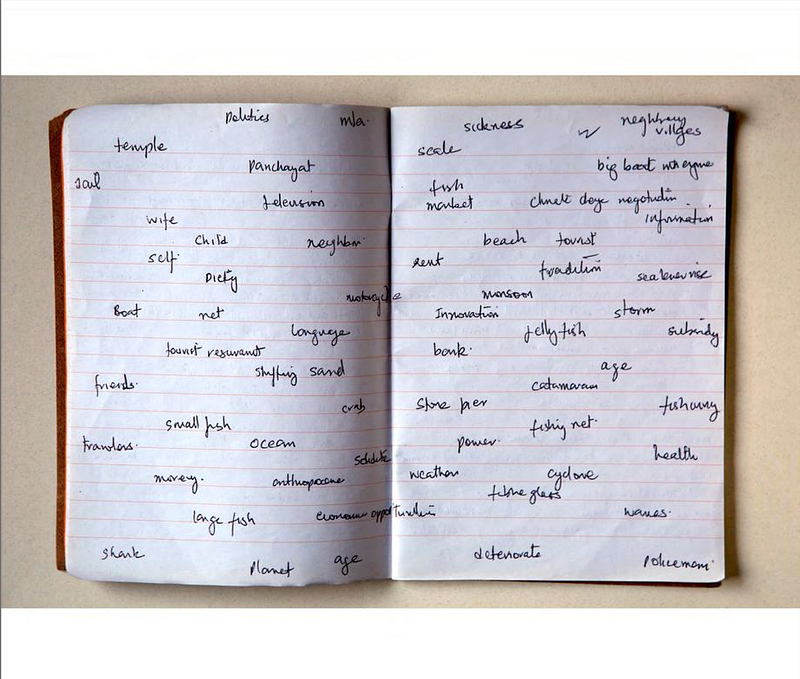 Politics
mla.
temple
Panchayat
sail
television
wife
child
neghbor.
self.
Diety
motorcycle
Boat
net
language
tourist resturant
shifting sand
friends.
crab
small fish
trawlers.
ocean
solidute
money.
anthropocene
large fish
economic opportunities
shark
Planet
age
sickness
neghbring
villges
scale
big boat with engine
fish
market
climate change negotiation.
information
beach
tourist
rent
tradition
sea level rise
monsoon
Innovation
storm
Jelly fish
subsidy
bank.
age
catamaran
Stone pier
fishing net.
power.
health
weather
cyclone
fibre glass
waves.
deteriorate
Policeman.